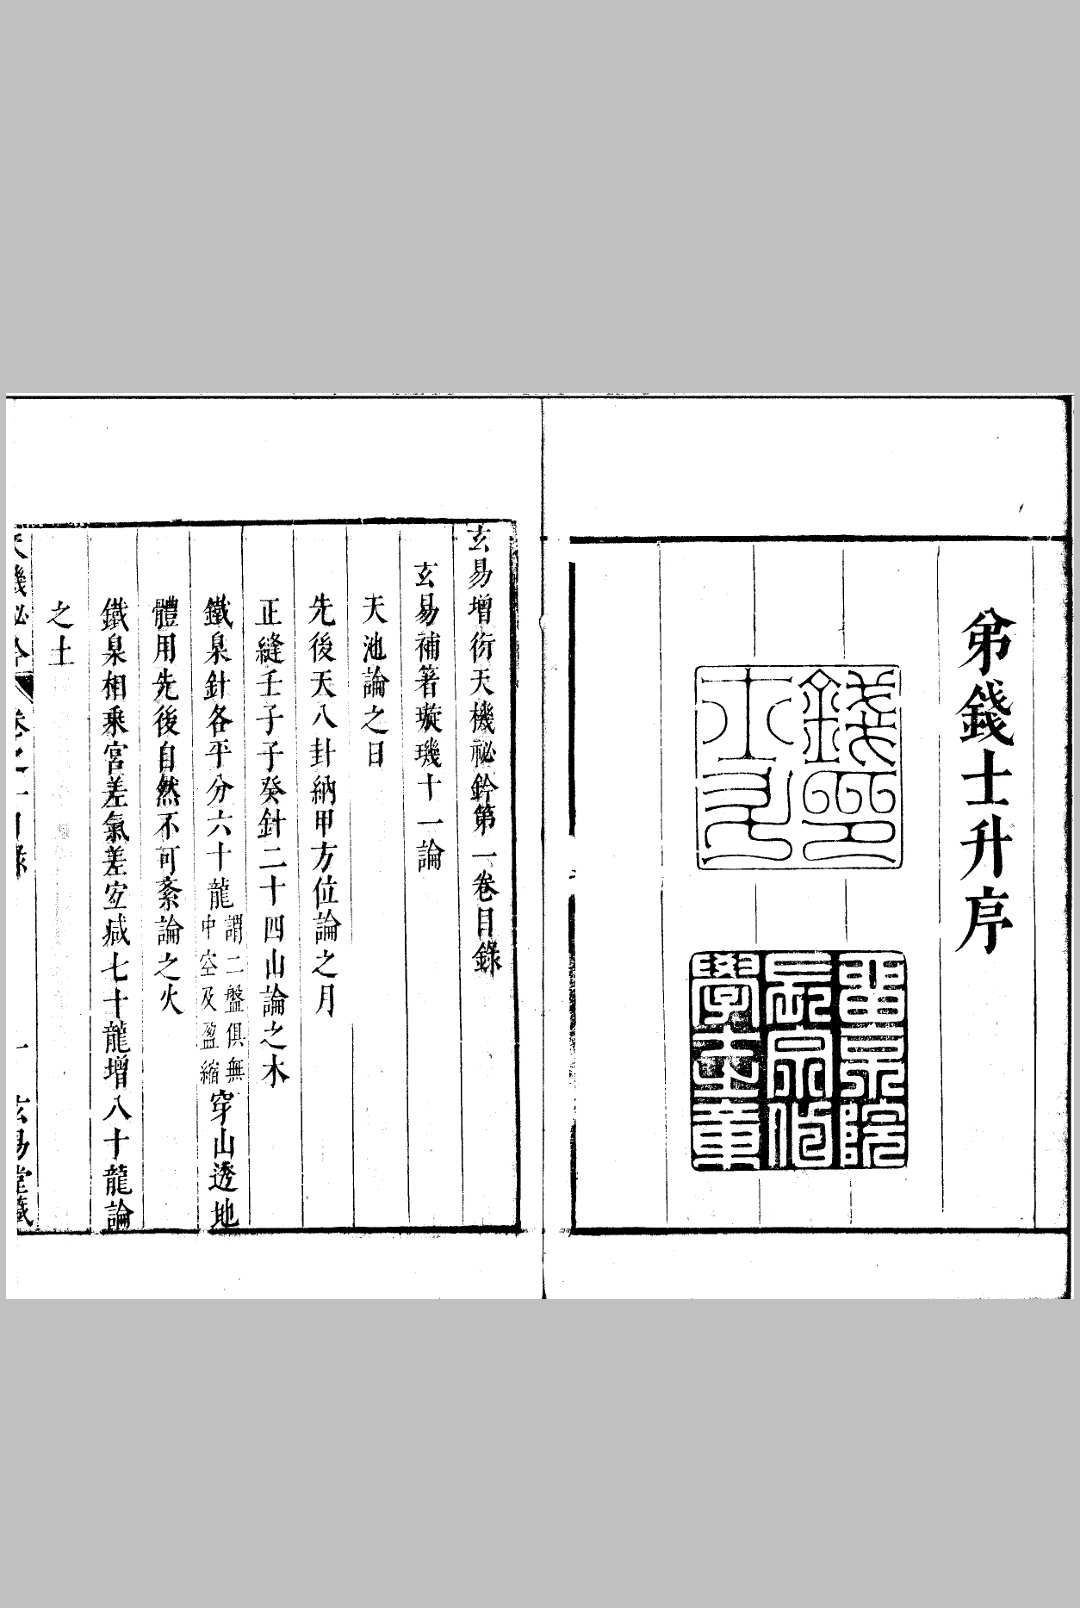 弟錢士升序
錢士升印
玄易增衍天機祕鈐第一卷目錄
玄易補著璇璣十一論
天池論之日
先後天八卦納甲方位論之月
正縫壬子子癸針二十四山論之木
鐵臬針各平分六十龍謂二盤俱無中空及盈縮穿山透地
體用先後自然不可紊論之火
鐵臬相乘宮差氣差宜減七十龍增八十龍論
之土
天機祕鈐 卷之一目錄 一 玄易堂鐵